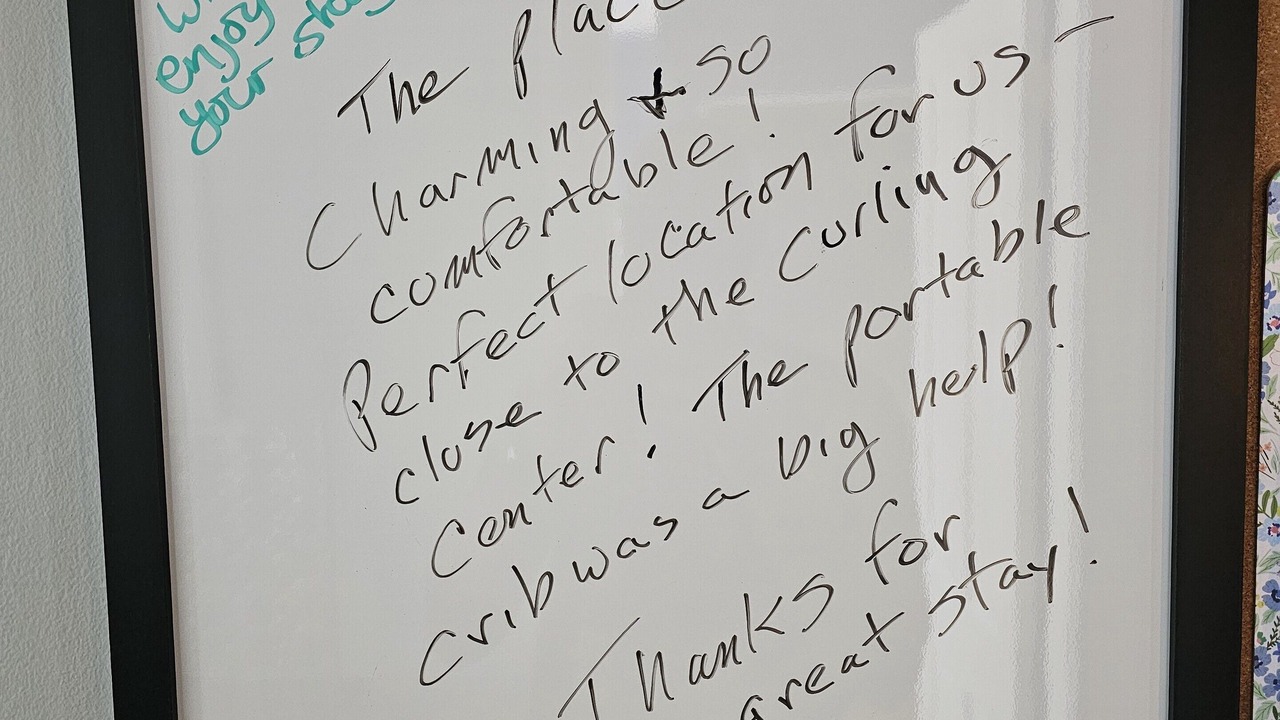 enjoy
your stay
The place
Charming + so
comfortable!
Perfect location for us -
close to the Curling
Center! The portable
crib was a big help!
Thanks for
great stay!